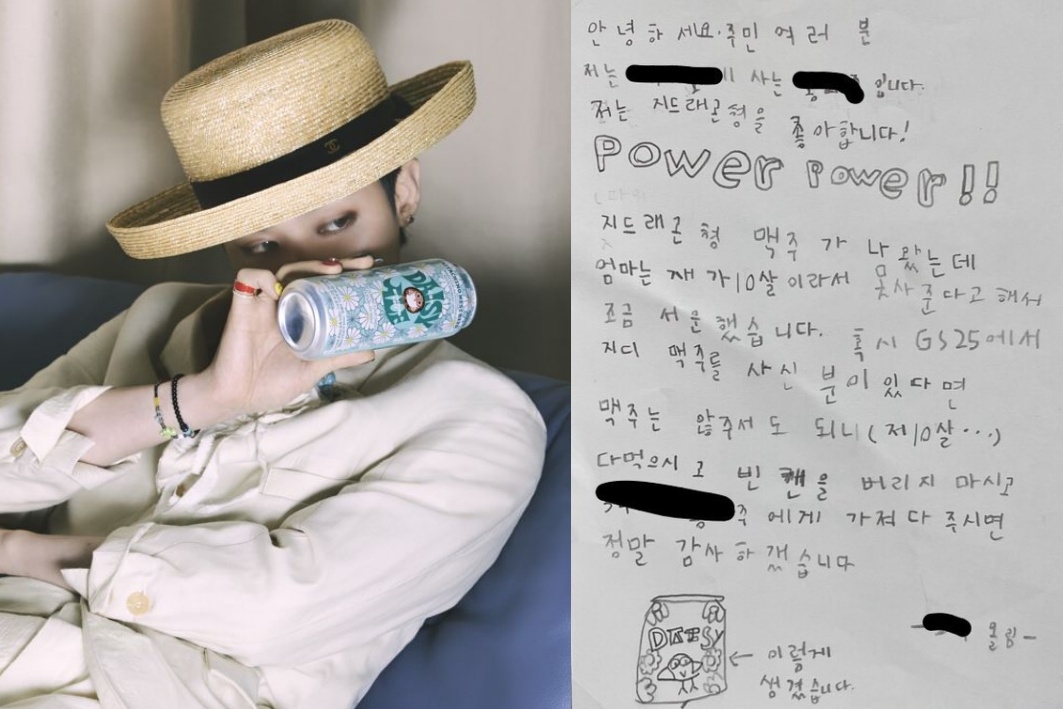 DAISY
안녕하세요. 주민 여러 분
저는 에 사는 입니다.
저는 지드래곤형을 좋아합니다!
Power Power!!
지드래곤형 맥주가 나왔는데
엄마는 제가 10살이라서 못사준다고 해서
조금 서운했습니다. 혹시 GS25에서
지디 맥주를 사신 분이 있다면
맥주는 않주서도 되니(제10살...)
다먹으시고 빈 캔을 버리지 마시고
주에게 가져다 주시면
정말 감사하겠습니다
올림-
DAISY
이렇게
생겼습니다.